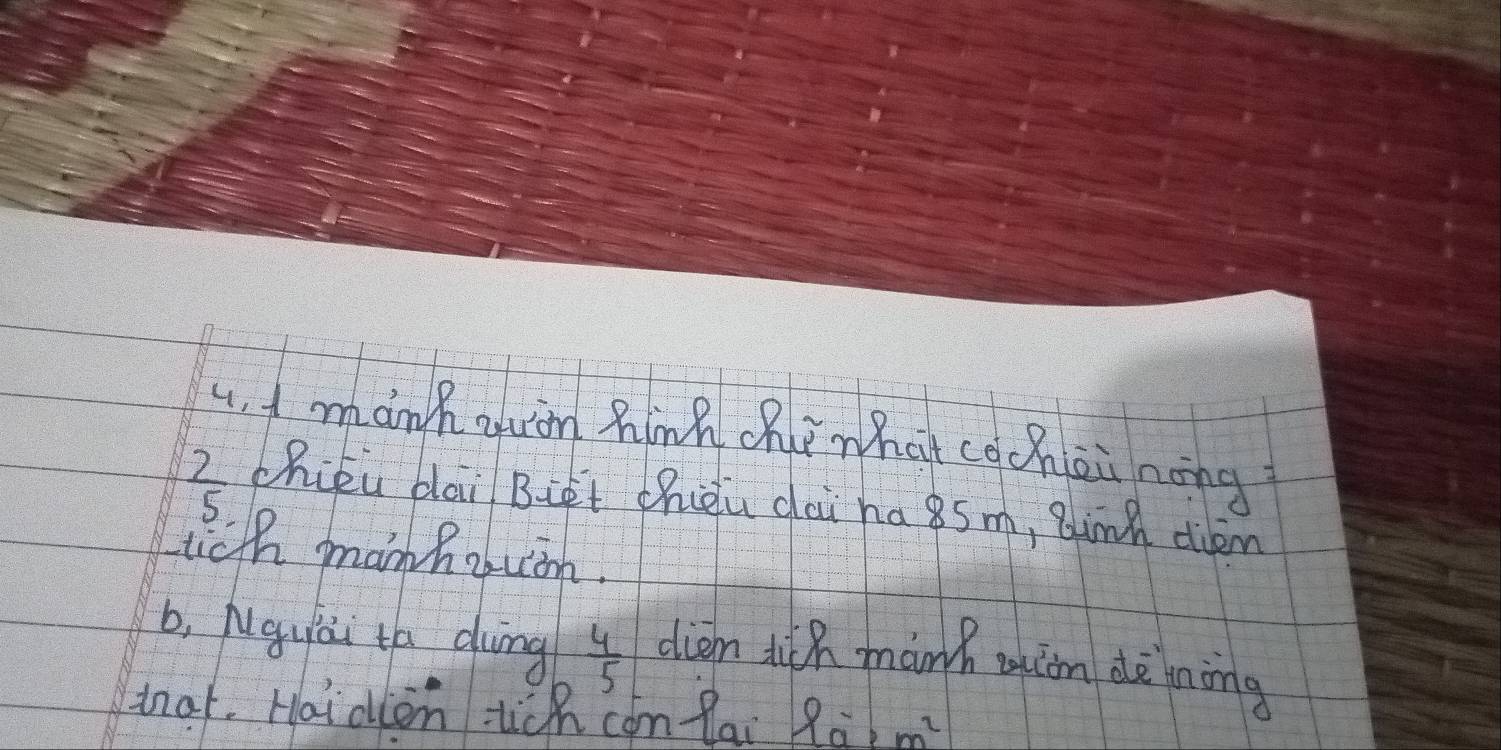 4, 1 mảnh vườn hình chữ nhật có chiều rộng =
2/5 chiều dài Biết chiều dài là 85m, Tính diện
tích mảnh vườn.
b, Người ta dùng 4/5 diện tích mảnh vườn để trồng
Hỏi diện tích còn lại là ? m²